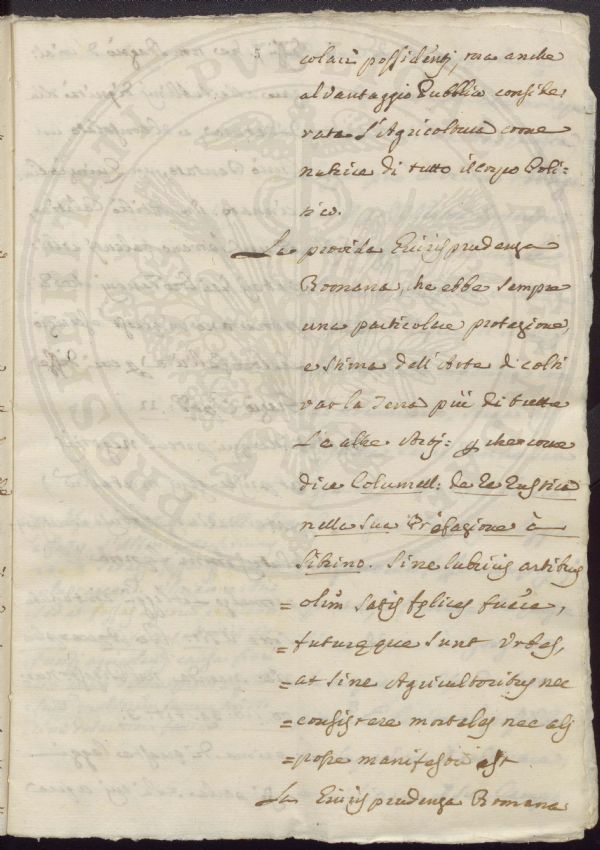 colari possidenti, ma anche
al vantaggio Pubblico conside-
rata l'Agricoltura come
nutrice di tutto il corpo Poli-
tico.
La provida Giurisprudenza
Romana, che ebbe sempre
una particolar protezione,
e stima dell'Arte di colti
var la Terra più di tutte
Le altre Arti: che come
dice Columell: de Re Rustica
nella sua Prefazione à
Silvino. Sine ludicris artibus
= olim satis felices fuere,
= futureque sunt Urbes,
= at sine Agricultoribus nec
= consistere mortales nec ali
= posse manifestu est
La Giurisprudenza Romana
PROSPERITATI PUBLICAE